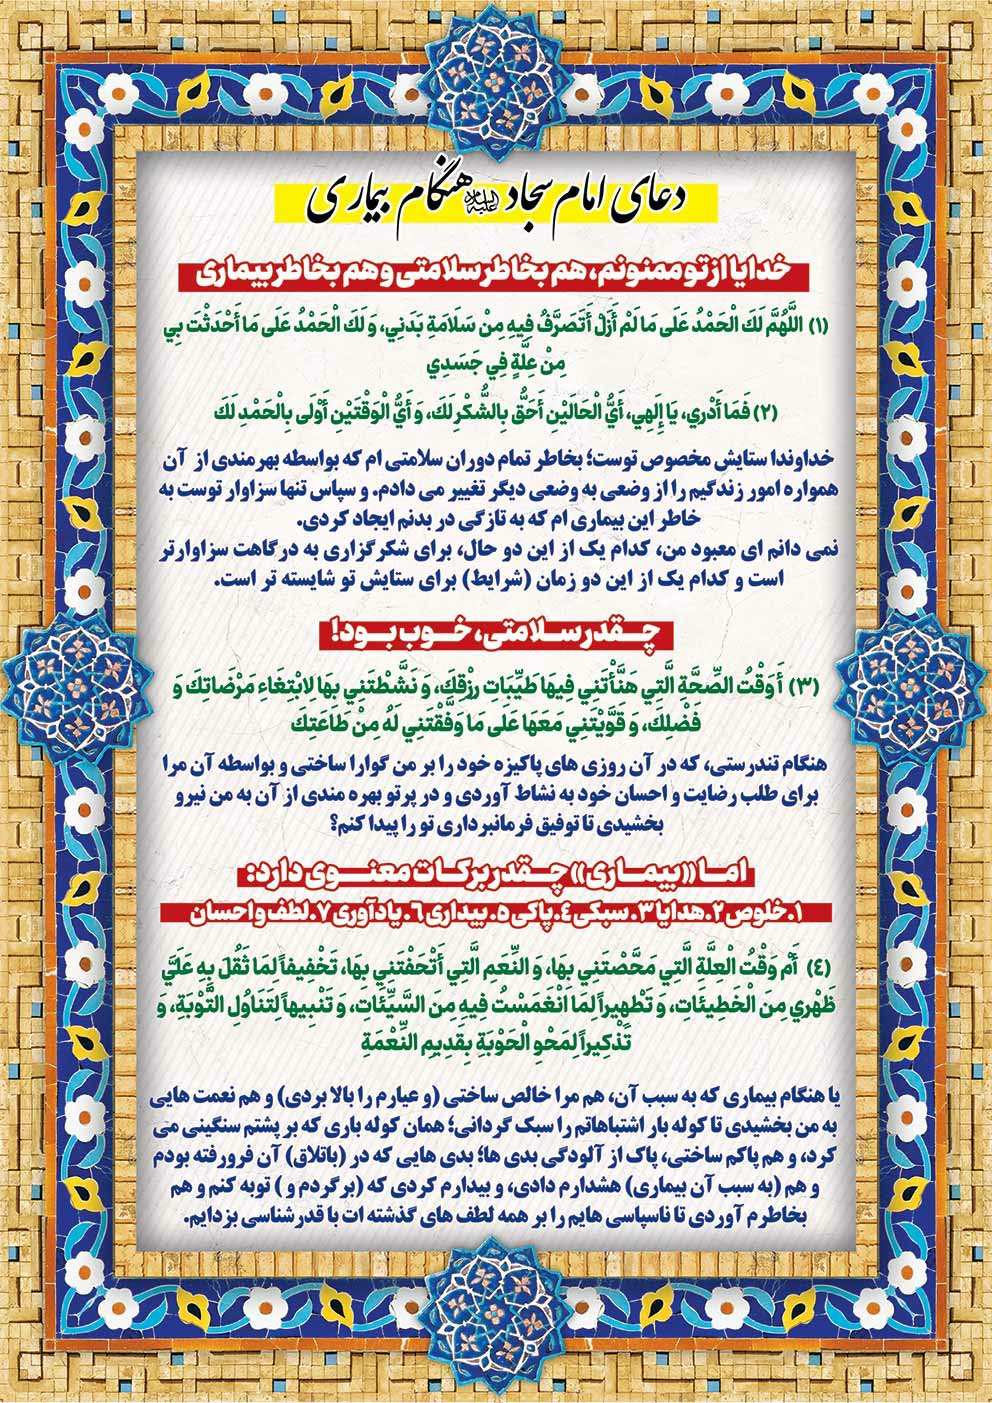 دعای امام سجاد علیه السلام هنگام بیماری
خدایا از تو ممنونم، هم بخاطر سلامتی و هم بخاطر بیماری
(۱) اللَّهُمَّ لَكَ الْحَمْدُ عَلَى مَا لَمْ أَزَلْ أَتَصَرَّفُ فِيهِ مِنْ سَلَامَةِ بَدَنِي، وَ لَكَ الْحَمْدُ عَلَى مَا أَحْدَثْتَ بِي
مِنْ عِلَّةٍ فِي جَسَدِي
(۲) فَمَا أَدْرِي، يَا إِلَهِي، أَيُّ الْحَالَيْنِ أَحَقُّ بِالشُّكْرِ لَكَ، وَ أَيُّ الْوَقْتَيْنِ أَوْلَى بِالْحَمْدِ لَكَ
خداوندا ستایش مخصوص توست؛ بخاطر تمام دوران سلامتی ام که بواسطه بهرمندی از آن
همواره امور زندگیم را از وضعی به وضعی دیگر تغییر می دادم. و سپاس تنها سزاوار توست به
خاطر این بیماری ام که به تازگی در بدنم ایجاد کردی.
نمی دانم ای معبود من، کدام یک از این دو حال، برای شکرگزاری به درگاهت سزاوارتر
است و کدام یک از این دو زمان (شرایط) برای ستایش تو شایسته تر است.
چقدر سلامتی، خوب بود!
(۳) أَ وَقْتُ الصِّحَّةِ الَّتِي هَنَّأْتَنِي فِيهَا طَيِّبَاتِ رِزْقِكَ، وَ نَشَّطْتَنِي بِهَا لِابْتِغَاءِ مَرْضَاتِكَ وَ
فَضْلِكَ، وَ قَوَّيْتَنِي مَعَهَا عَلَى مَا وَفَّقْتَنِي لَهُ مِنْ طَاعَتِكَ
هنگام تندرستی، که در آن روزی های پاکیزه خود را بر من گوارا ساختی و بواسطه آن مرا
برای طلب رضایت و احسان خود به نشاط آوردی و در پرتو بهره مندی از آن به من نیرو
بخشیدی تا توفیق فرمانبرداری تو را پیدا کنم؟
اما «بیماری» چقدر برکات معنوی دارد:
۱.خلوص ۲.هدایا ۳.سبکی ٤.پاکی ۵.بیداری ٦.یادآوری ۷.لطف و احسان
(٤) أَمْ وَقْتُ الْعِلَّةِ الَّتِي مَحَّصْتَنِي بِهَا، وَ النِّعَمِ الَّتِي أَتْحَفْتَنِي بِهَا، تَخْفِيفاً لِمَا ثَقُلَ بِهِ عَلَيَّ
ظَهْرِي مِنَ الْخَطِيئَاتِ، وَ تَطْهِيراً لِمَا انْغَمَسْتُ فِيهِ مِنَ السَّيِّئَاتِ، وَ تَنْبِيهاً لِتَنَاوُلِ التَّوْبَةِ، وَ
تَذْكِيراً لِمَحْوِ الْحَوْبَةِ بِقَدِيمِ النِّعْمَةِ
یا هنگام بیماری که به سبب آن، هم مرا خالص ساختی (و عیارم را بالا بردی) و هم نعمت هایی
به من بخشیدی تا کوله بار اشتباهاتم را سبک گردانی؛ همان کوله باری که بر پشتم سنگینی می
کرد، و هم پاکم ساختی، پاک از آلودگی بدی ها؛ بدی هایی که در (باتلاق) آن فرورفته بودم
و هم (به سبب آن بیماری) هشدارم دادی، و بیدارم کردی که (برگردم و ) توبه کنم و هم
بخاطرم آوردی تا ناسپاسی هایم را بر همه لطف های گذشته ات با قدرشناسی بزدایم.